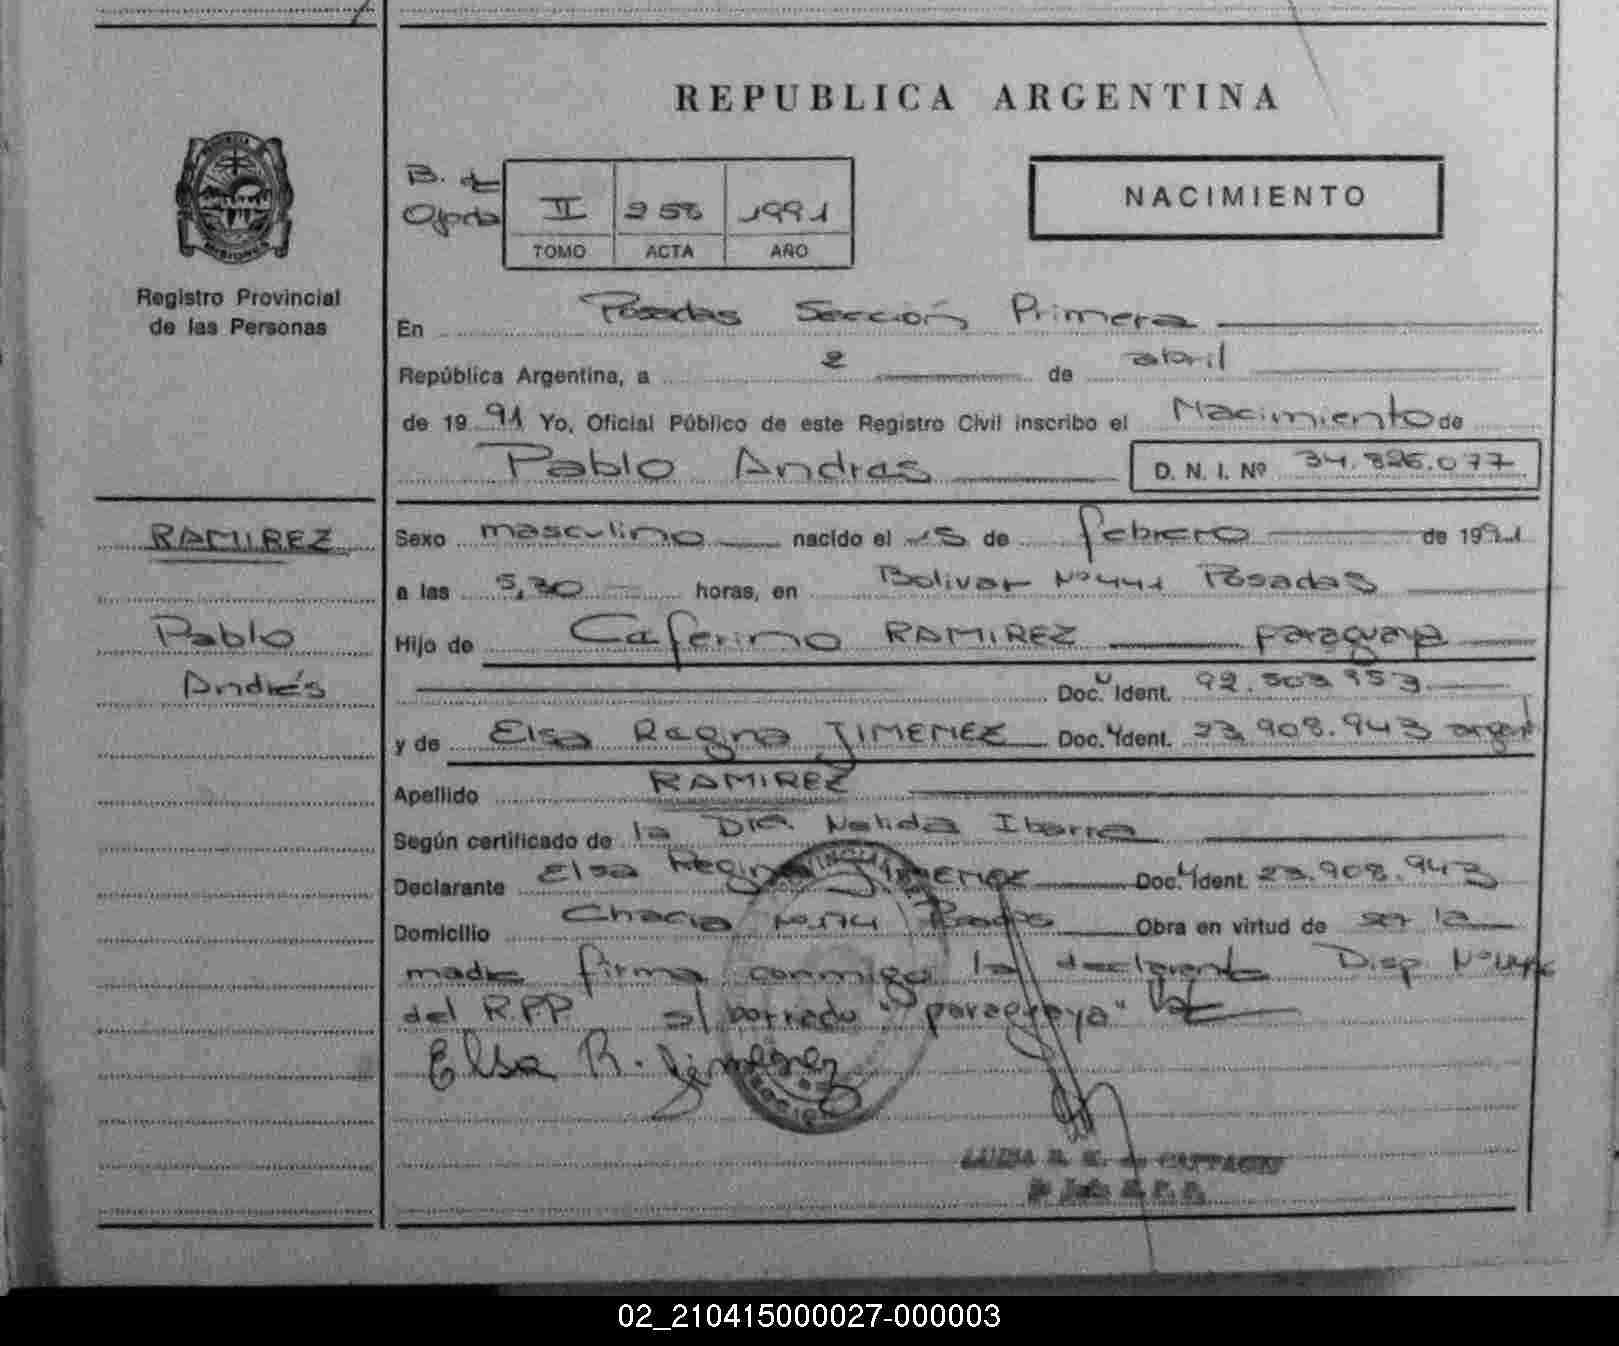 REPUBLICA ARGENTINA
NACIMIENTO
B. de
II 1991
TOMO ACTA AÑO
Registro Provincial
de las Personas
En Posadas Sección Primera
República Argentina, a 2 de abril
de 1991 Yo, Oficial Público de este Registro Civil inscribo el Nacimiento de
Pablo Andres D. N. I. Nº 34.826.077
RAMIREZ
Pablo
Andrés
Sexo masculino nacido el 15 de febrero de 1991
a las 5,30 horas, en Bolivar Nº 441 Posadas
Hijo de Caferino RAMIREZ paraguaya
Doc. Ident.
y de Elsa Regina JIMENEZ Doc. Ident. 23.908.943 argent
Apellido RAMIREZ
Según certificado de la Dra. Nelida Ibarra
Declarante Elsa Regina JIMENEZ Doc. Ident. 23.908.943
Domicilio Nº 174 Posadas Obra en virtud de ser la
madre firma conmigo la declarante Disp. Nº
del R.P.P. s/ borrado "paraguaya" Vale
Elsa R. Jimenez
02_210415000027-000003